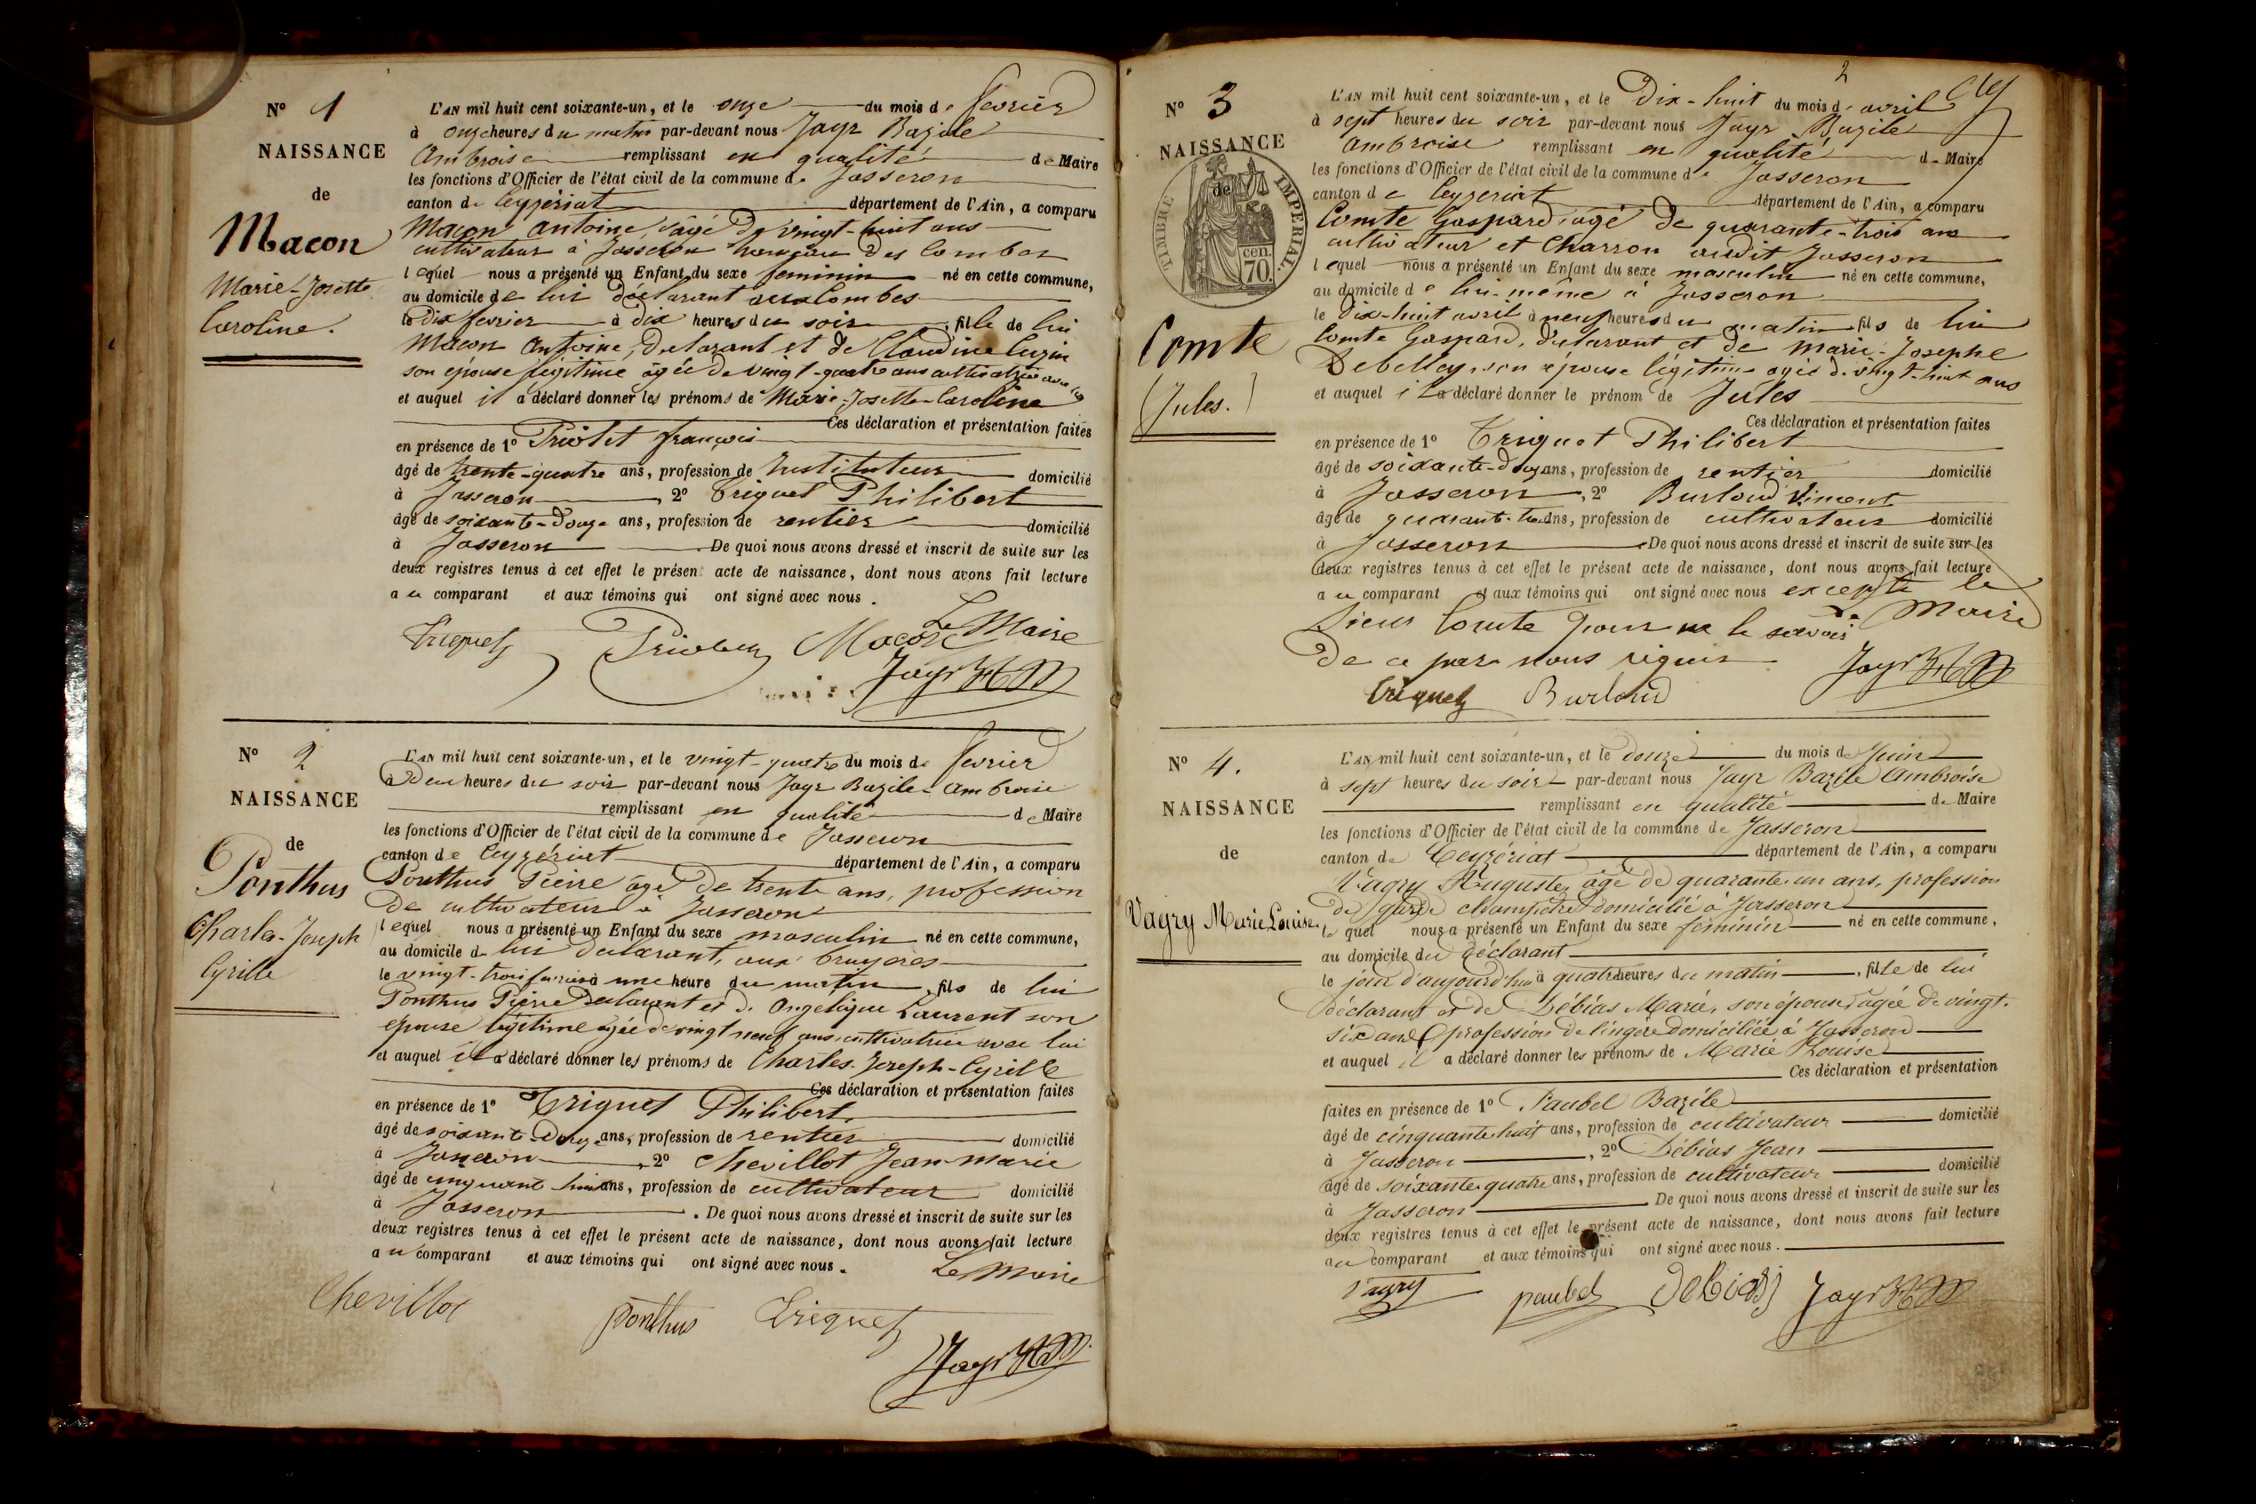 N° 1
NAISSANCE
de
Macon
Marie-Josette
Caroline.
L'AN mil huit cent soixante-un, et le onze du mois de fevrier
à onze heures du matin par-devant nous Jayr Bazile
Ambroise remplissant en qualité de Maire
les fonctions d'Officier de l'état civil de la commune de Jasseron
canton de Ceyzériat département de l'Ain, a comparu
Macon Antoine, âgé de vingt-huit ans
cultivateur à Jasseron hameau des Combes
lequel nous a présenté un Enfant du sexe feminin né en cette commune,
au domicile de lui déclarant aux Combes
le dix fevrier à dix heures du soir, fille de lui
Macon Antoine, declarant et de Claudine Cuzin
son épouse légitime agée de vingt-quatre ans cultivatrice avec lui
et auquel il a déclaré donner les prénoms de Marie-Josette-Caroline
Ces déclaration et présentation faites
en présence de 1° Priolet françois
âgé de trente-quatre ans, profession de Instituteur domicilié
à Jasseron, 2° Triquet Philibert
âgé de soixante-douze ans, profession de rentier domicilié
à Jasseron. De quoi nous avons dressé et inscrit de suite sur les
deux registres tenus à cet effet le présent acte de naissance, dont nous avons fait lecture
au comparant et aux témoins qui ont signé avec nous.
Triquet Priolet Macon Le Maire
Jayr
N° 2
NAISSANCE
de
Ponthus
Charles-Joseph
Cyrille
L'AN mil huit cent soixante-un, et le vingt-quatre du mois de fevrier
à Deux heures du soir par-devant nous Jayr Bazile-Ambroise
remplissant en qualité de Maire
les fonctions d'Officier de l'état civil de la commune de Jasseron
canton de Ceyzériat département de l'Ain, a comparu
Ponthus Pierre âgé de trente ans, profession
de cultivateur à Jasseron
lequel nous a présenté un Enfant du sexe masculin né en cette commune,
au domicile de lui declarant, aux bruyeres
le vingt-trois fevrier à une heure du matin, fils de lui
Ponthus Pierre Declarant et de Angelique Laurent son
épouse légitime agée de vingt neuf ans, cultivatrice avec lui
et auquel il a déclaré donner les prénoms de Charles-Joseph-Cyrille
Ces déclaration et présentation faites
en présence de 1° Triquet Philibert
âgé de soixante-Douze ans, profession de rentier domicilié
à Jasseron, 2° Chevillot Jean-Marie
âgé de cinquante huit ans, profession de cultivateur domicilié
à Jasseron. De quoi nous avons dressé et inscrit de suite sur les
deux registres tenus à cet effet le présent acte de naissance, dont nous avons fait lecture
au comparant et aux témoins qui ont signé avec nous.
Le Maire
Chevillot Ponthus Triquet
Jayr
2
N° 3
NAISSANCE
de
TIMBRE IMPÉRIAL.
70 cen.
Comte
(Jules.)
L'AN mil huit cent soixante-un, et le Dix-huit du mois de avril
à sept heures du soir par-devant nous Jayr Bazile
Ambroise remplissant en qualité de Maire
les fonctions d'Officier de l'état civil de la commune de Jasseron
canton de Ceyzeriat département de l'Ain, a comparu
Comte Gaspard, agé de quarante-trois ans
cultivateur et Charron audit Jasseron
lequel nous a présenté un Enfant du sexe masculin né en cette commune,
au domicile de lui-même à Jasseron
le Dix-huit avril à neuf heures du matin fils de lui
Comte Gaspard, declarant et de Marie-Josephe
Debelley, son épouse légitime agée de vingt-huit ans
et auquel il a déclaré donner le prénom de Jules
Ces déclaration et présentation faites
en présence de 1° Triquet Philibert
âgé de soixante-douze ans, profession de rentier domicilié
à Jasseron, 2° Burloud Vincent
âgé de quarante-trois ans, profession de cultivateur domicilié
à Jasseron. De quoi nous avons dressé et inscrit de suite sur les
deux registres tenus à cet effet le présent acte de naissance, dont nous avons fait lecture
au comparant et aux témoins qui ont signé avec nous excepté le
Sieur Comte pour ne le savoir Le Maire
De ce par nous requis Jayr
Triquet Burloud
N° 4.
NAISSANCE
de
Vagry Marie Louise.
L'AN mil huit cent soixante-un, et le douze du mois de Juin
à sept heures du soir par-devant nous Jayr Bazile Ambroise
remplissant en qualité de Maire
les fonctions d'Officier de l'état civil de la commune de Jasseron
canton de Ceyzériat département de l'Ain, a comparu
Vagry Auguste, âgé de quarante un ans, profession
de garde champêtre domicilié à Jasseron
lequel nous a présenté un Enfant du sexe féminin né en cette commune,
au domicile du déclarant
le jour d'aujourd'hui à quatre heures du matin, fille de lui
déclarant et de Débias Marie, son épouse, agée de vingt-
six ans profession de lingère domiciliée à Jasseron
et auquel il a déclaré donner les prénoms de Marie Louise
Ces déclaration et présentation
faites en présence de 1° Paubel Bazile
âgé de cinquante huit ans, profession de cultivateur domicilié
à Jasseron, 2° Débias Jean
âgé de soixante quatre ans, profession de cultivateur domicilié
à Jasseron. De quoi nous avons dressé et inscrit de suite sur les
deux registres tenus à cet effet le présent acte de naissance, dont nous avons fait lecture
au comparant et aux témoins qui ont signé avec nous.
Vagry paubel Debias Jayr